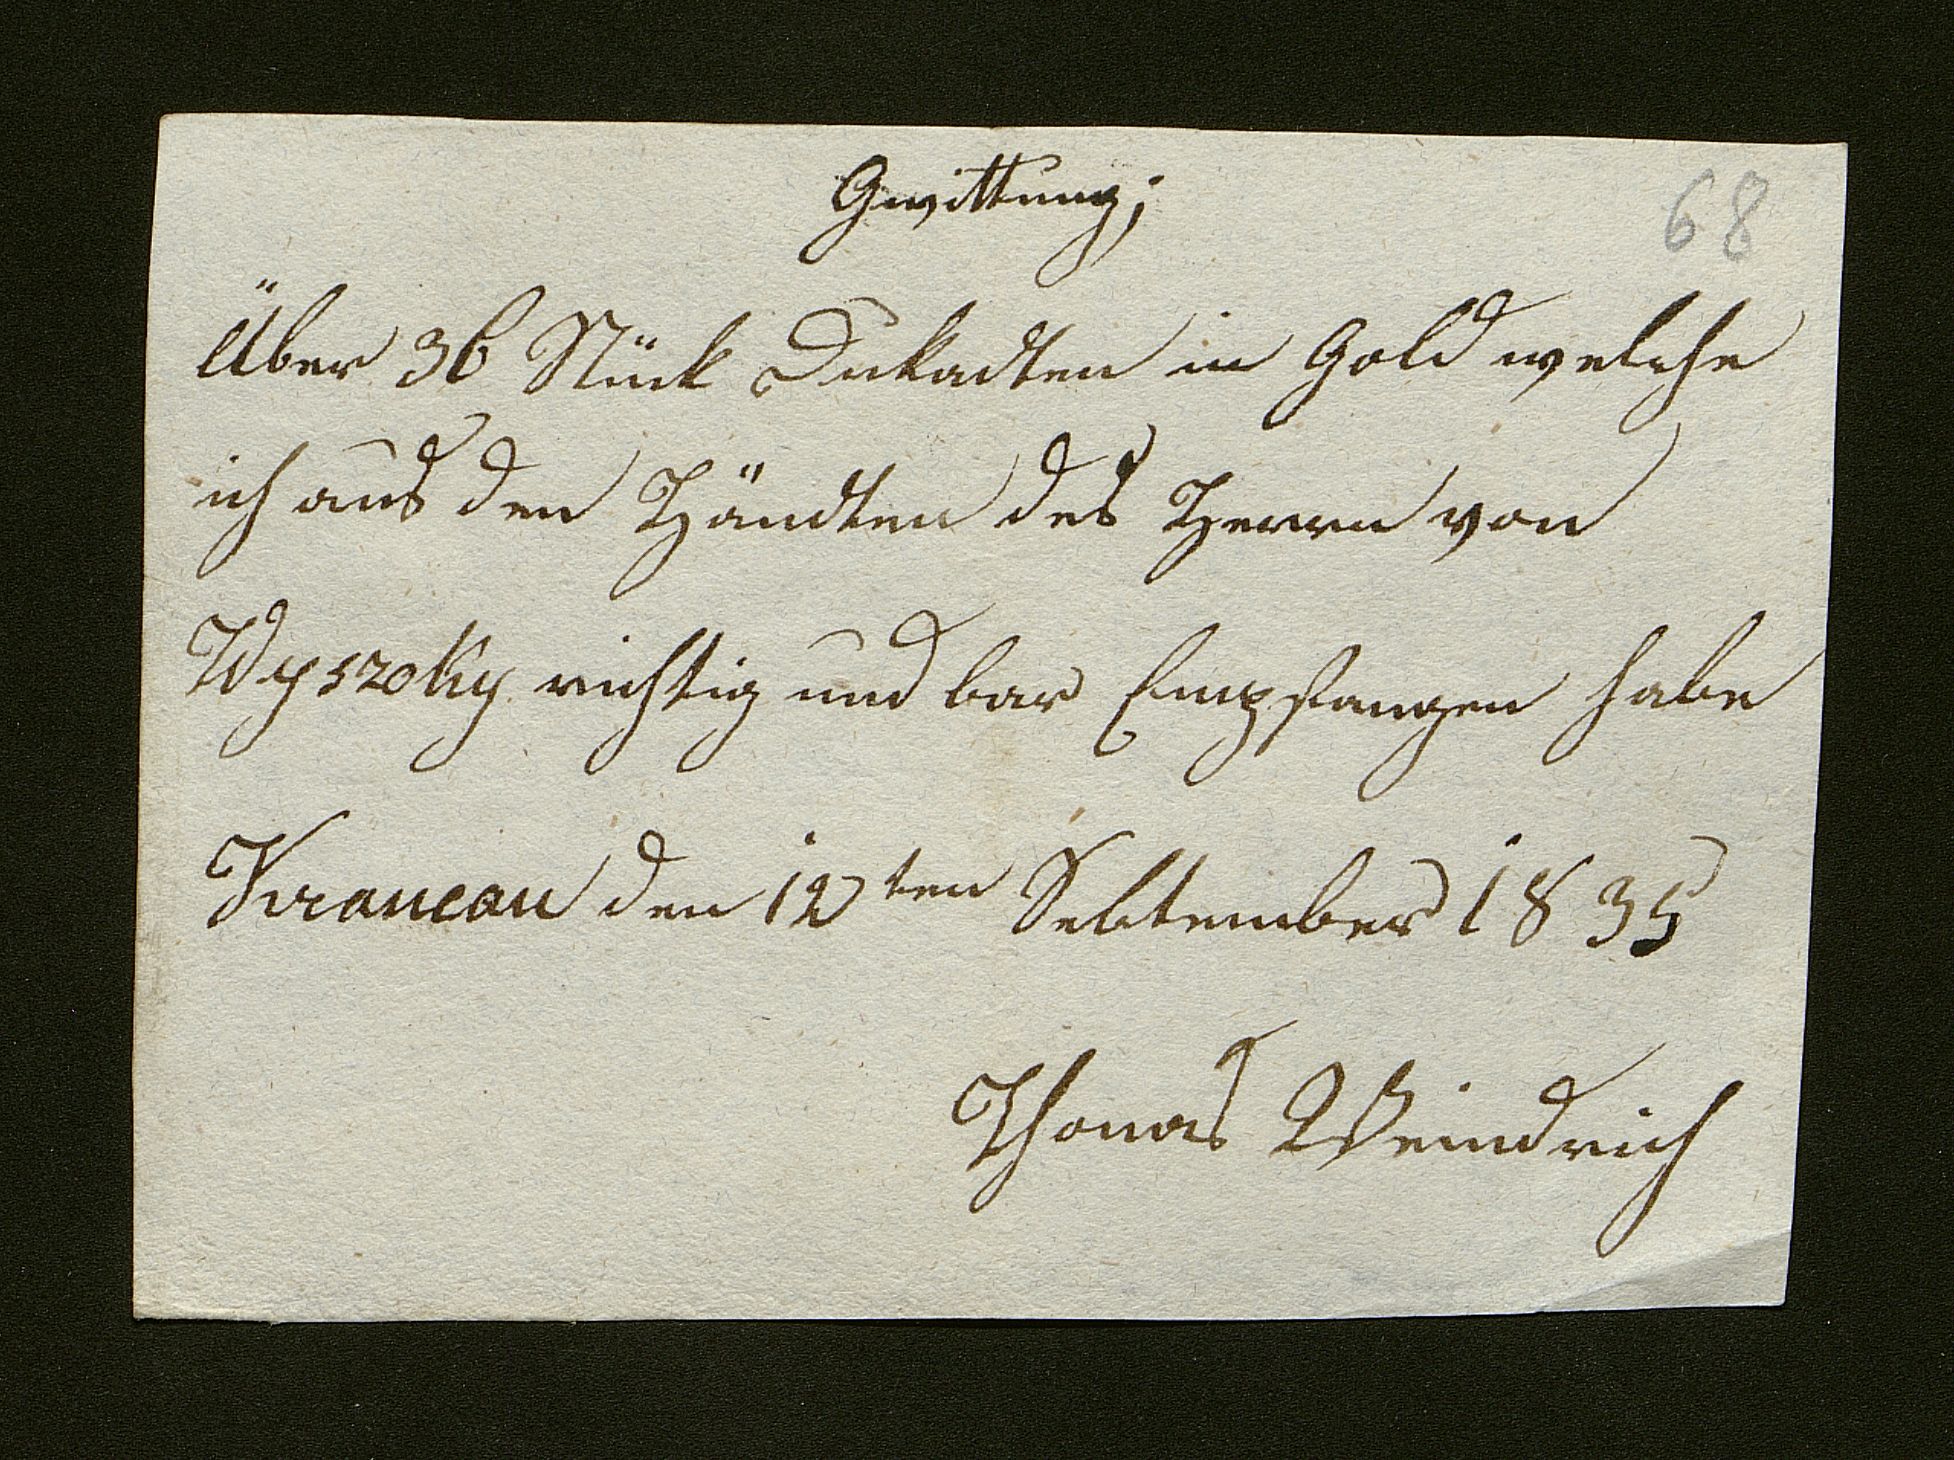 Gwittung;
68
Über 36 Stück Dukadten in Gold welche
ich aus den Händten des Herrn von
Wyszoky richtig und bar Empfangen habe
Kraucau den 12ten Sebtember 1835
Thomas Weindrich